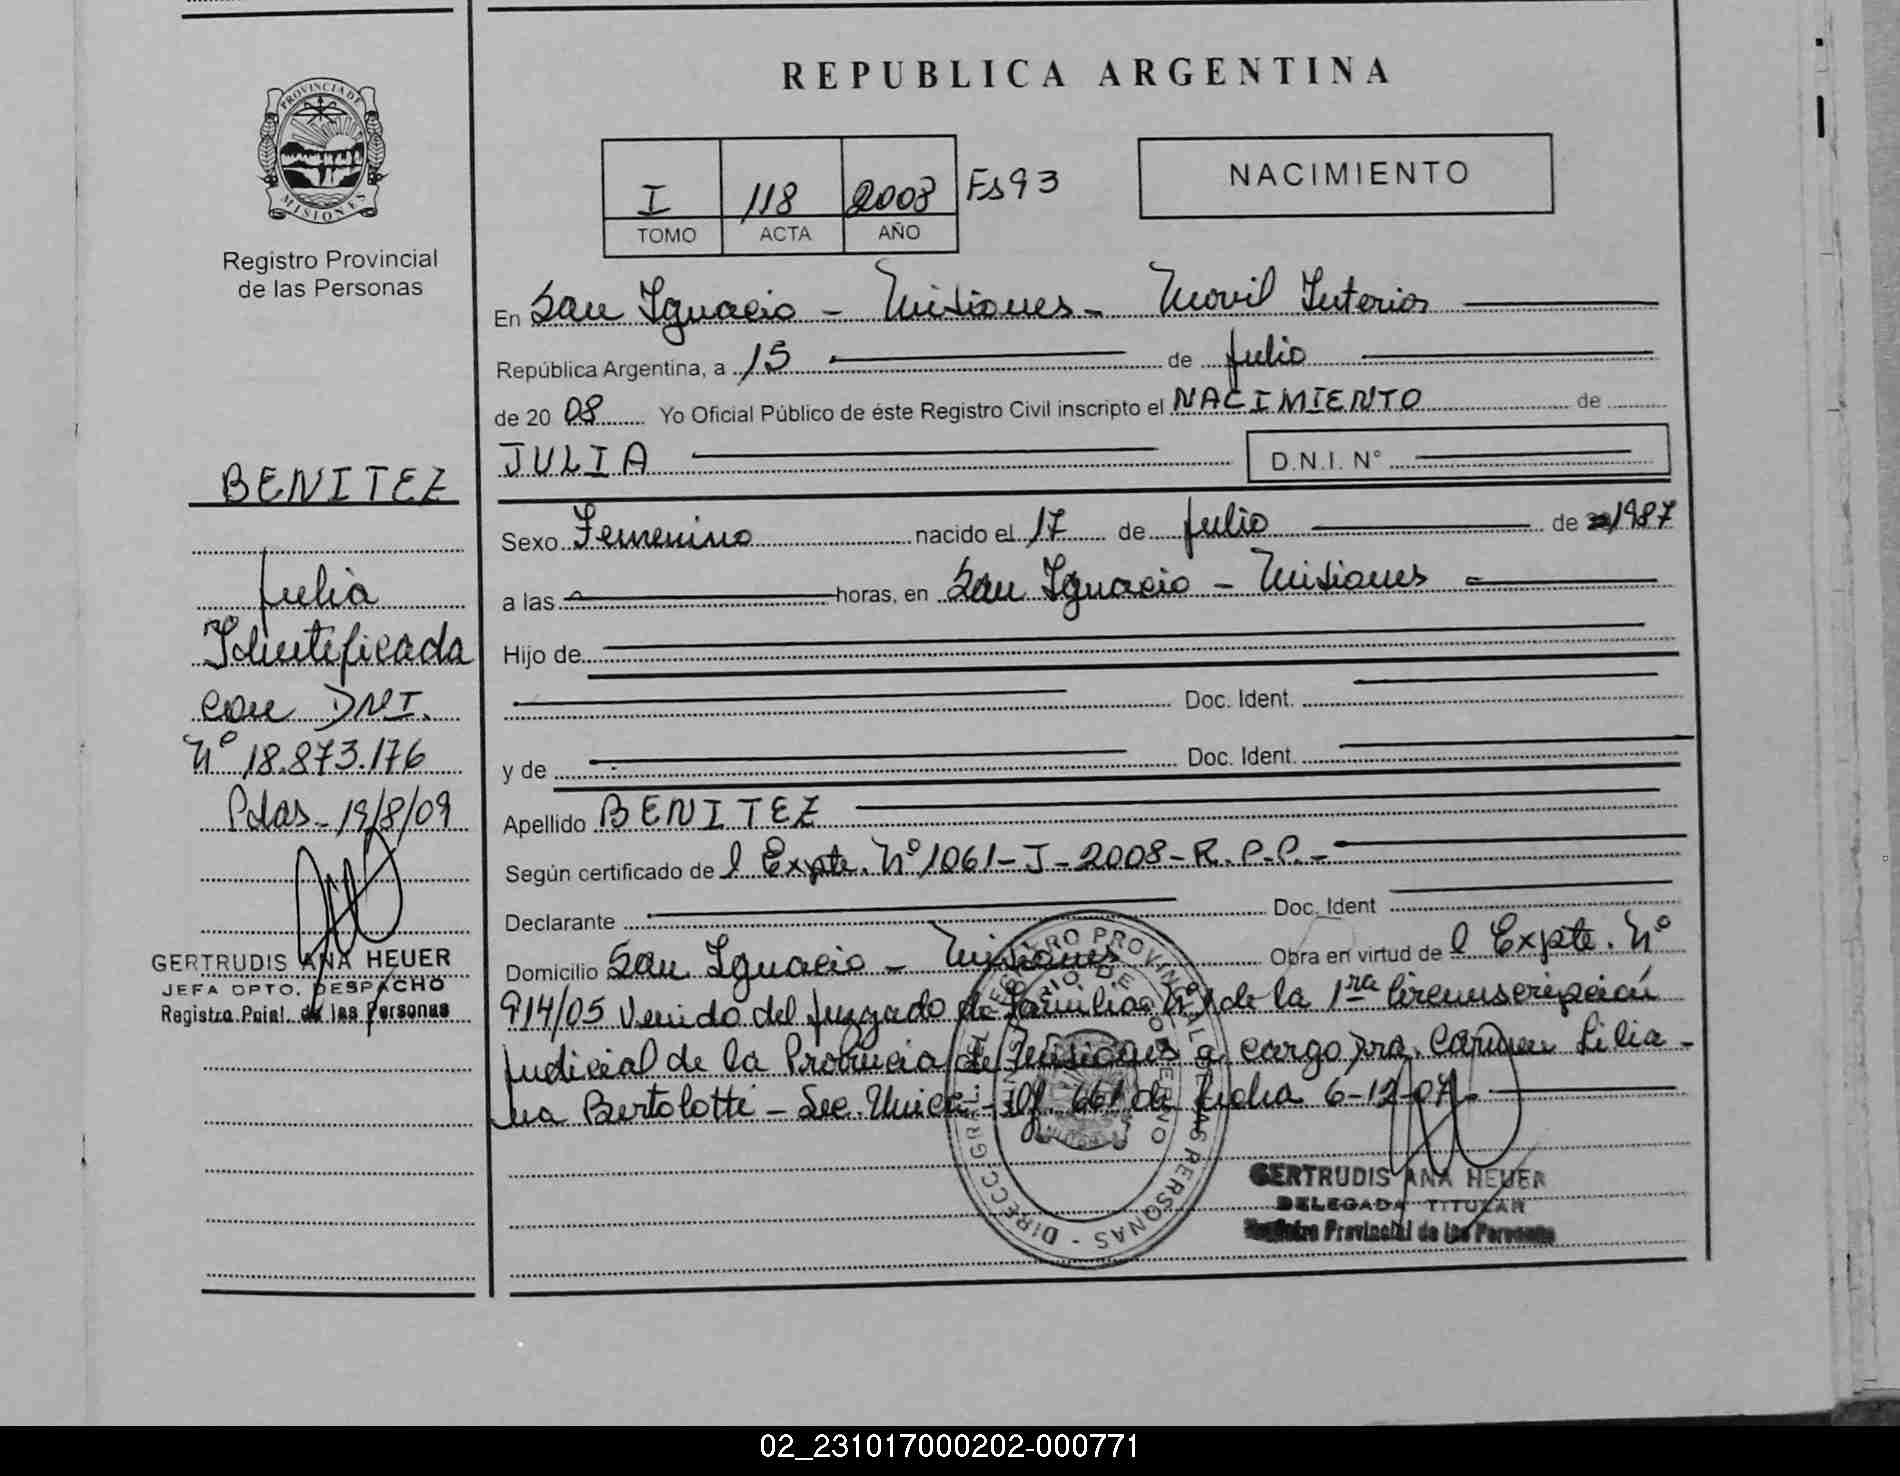 REPUBLICA ARGENTINA
PROVINCIA DE MISIONES
Registro Provincial
de las Personas
I 118 2008 Fs 93
TOMO ACTA AÑO
NACIMIENTO
En San Ignacio - Misiones - Movil Interior
República Argentina, a 15 de Julio
de 20 08 Yo Oficial Público de éste Registro Civil inscripto el NACIMIENTO de
JULIA D.N.I. N°
Sexo Femenino nacido el 17 de Julio de 1987
a las horas, en San Ignacio - Misiones
Hijo de
Doc. Ident.
y de Doc. Ident.
Apellido BENITEZ
Según certificado de l Expte. Nº 1061-J-2008-R.P.P.-
Declarante Doc. Ident
Domicilio San Ignacio - Misiones Obra en virtud de l Expte. Nº
914/05 Venido del Juzgado de Familia Nº 1 de la 1ra Circunscripción
Judicial de la Provincia de Misiones a cargo Dra. Carmen Lilia-
na Bertolotti - Sec. Unica - Of. 661 de fecha 6-12-07.-
GERTRUDIS ANA HEUER
DELEGADA TITULAR
Registro Provincial de las Personas
BENITEZ
Julia
Identificada
con DNI.
Nº 18.873.176
Pdas - 19/8/09
GERTRUDIS ANA HEUER
JEFA DPTO. DESPACHO
Registro Pcial. de las Personas
02_231017000202-000771